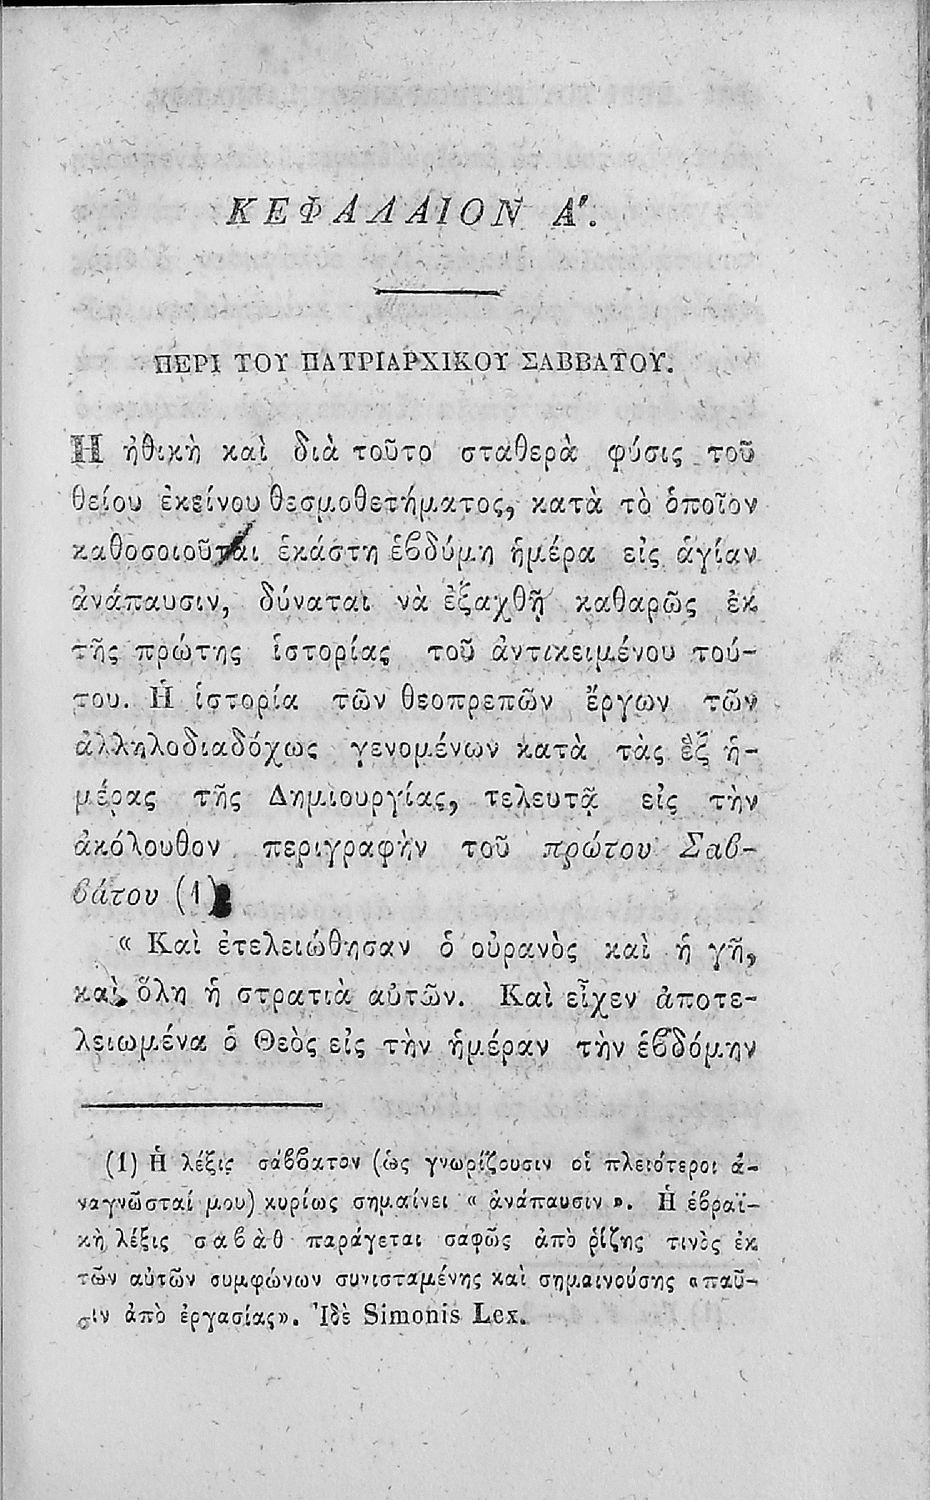 ΚΕΦΑΛΑΙΟΝ Α΄.
ΠΕΡΙ ΤΟΥ ΠΑΤΡΙΑΡΧΙΚΟΥ ΣΑΒΒΑΤΟΥ.
Η ἠθικὴ καὶ διὰ τοῦτο σταθερὰ φύσις τοῦ
θείου ἐκείνου θεσμοθετήματος, κατὰ τὸ ὁποῖον
καθοσιοῦται ἑκάστη ἑβδύμη ἡμέρα εἰς ἁγίαν
ἀνάπαυσιν, δύναται νὰ ἐξαχθῇ καθαρῶς ἐκ
τῆς πρώτης ἱστορίας τοῦ ἀντικειμένου τού-
του. Ἡ ἱστορία τῶν θεοπρεπῶν ἔργων τῶν
ἀλληλοδιαδόχως γενομένων κατὰ τὰς ἓξ ἡ-
μέρας τῆς Δημιουργίας, τελευτᾷ εἰς τὴν
ἀκόλουθον περιγραφὴν τοῦ πρώτου Σαβ-
βάτου (1)
« Καὶ ἐτελειώθησαν ὁ οὐρανὸς καὶ ἡ γῆ,
καὶ ὅλη ἡ στρατιὰ αὐτῶν. Καὶ εἶχεν ἀποτε-
λειωμένα ὁ Θεὸς εἰς τὴν ἡμέραν τὴν ἑβδόμην
(1) Ἡ λέξις σάββατον (ὡς γνωρίζουσιν οἱ πλειότεροι ἀ-
ναγνῶσταί μου) κυρίως σημαίνει « ἀνάπαυσιν ». Ἡ ἑβραϊ-
κὴ λέξις σαβὰθ παράγεται σαφῶς ἀπὸ ῥίζης τινὸς ἐκ
τῶν αὐτῶν συμφώνων συνισταμένης καὶ σημαινούσης «παῦ-
σιν ἀπὸ ἐργασίας». Ἰδὲ Simonis Lex.